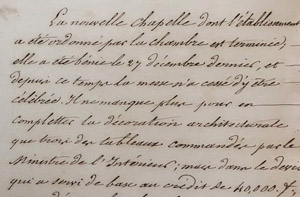 La nouvelle chapelle dont l'établissement
a été ordonné par la chambre est terminée;
elle a été bénie le 27 décembre dernier, et
depuis ce temps la messe n'a cessé d'y être
célébrée. Il ne manque plus pour en
completter la décoration architecturale
que trois des tableaux commandés par le
Ministre de l'Intérieur; mais dans le devis
qui a servi de base au crédit de 40,000 f